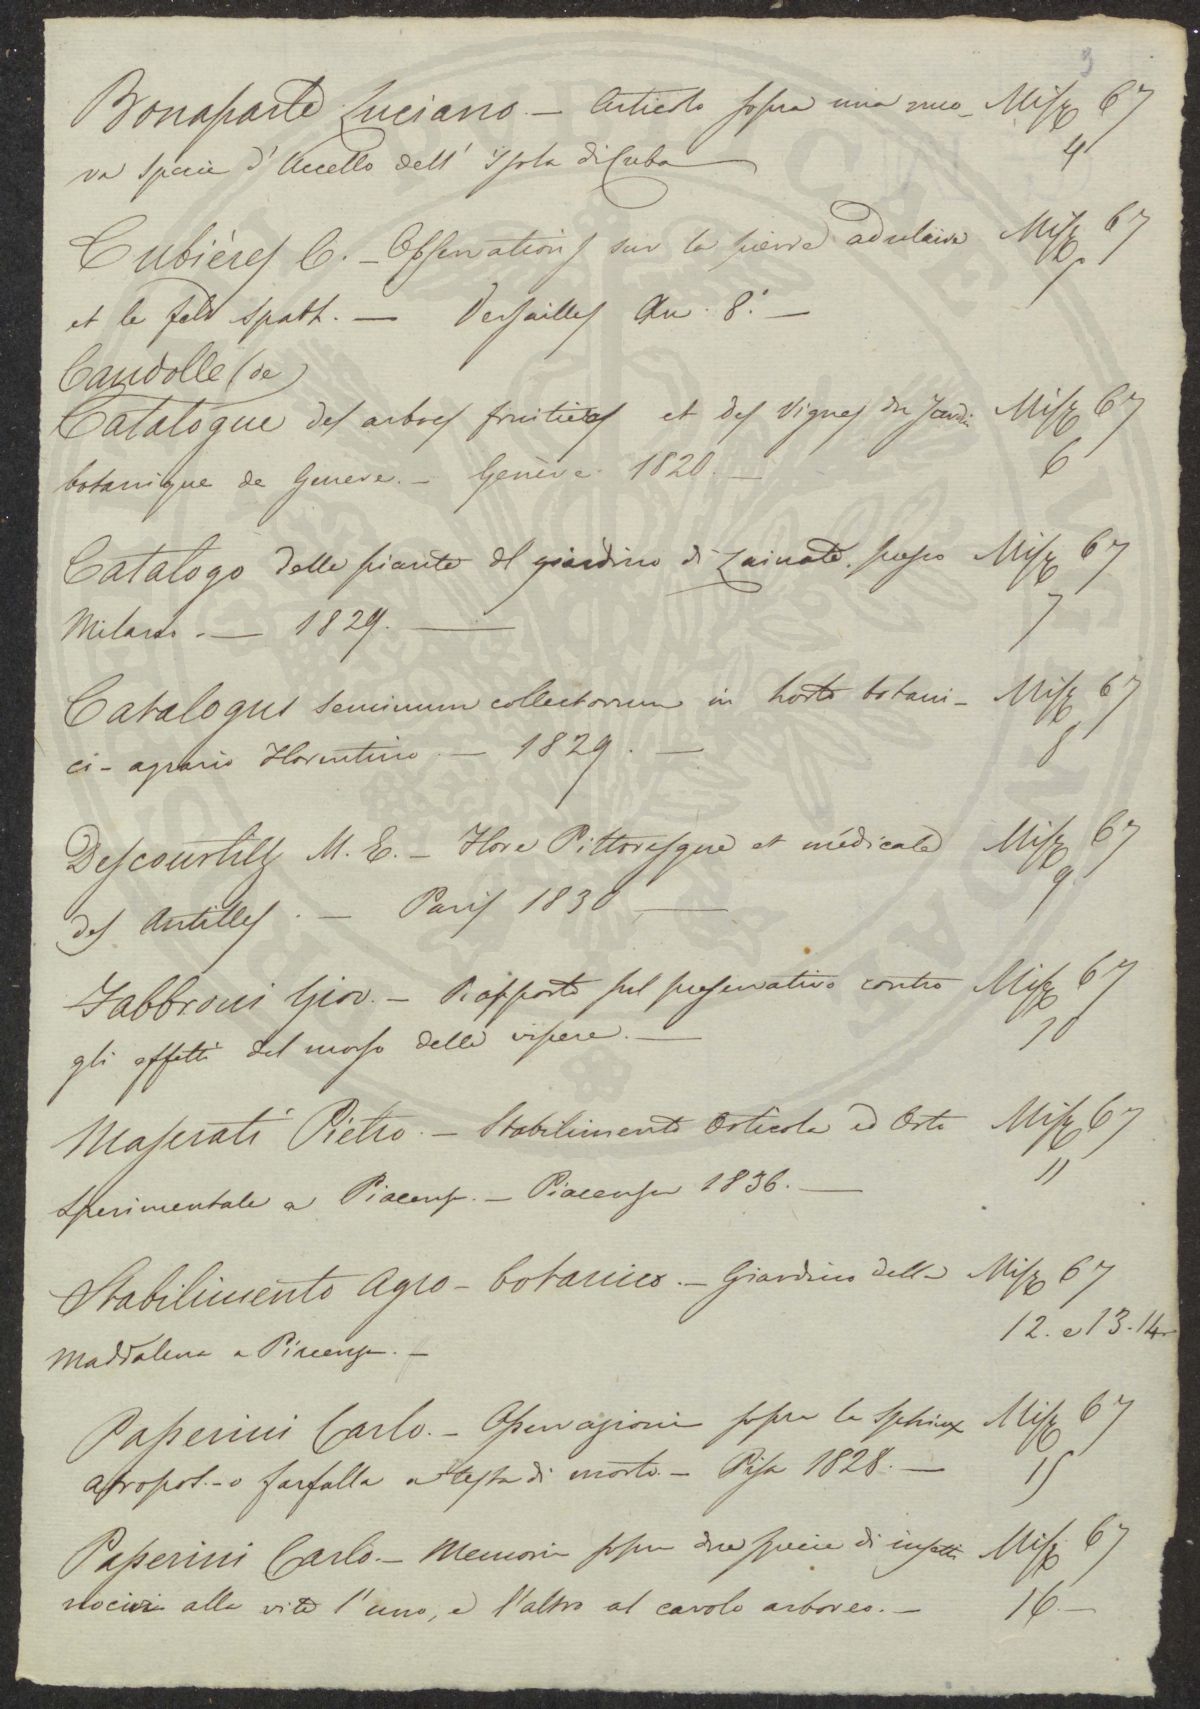 3
Bonaparte Luciano. — Articolo sopra una nuo- Misc 67
va specie d'Uccello dell'Isola di Cuba 4
Cubières C. — Observations sur la pierre adulaire Misc 67
et le feld spath. — Versailles An. 8.° — 5
Candolle (de)
Catalogue des arbres fruitiers et des vignes du Jardin Misc 67
botanique de Geneve. — Genève 1820. — 6
Catalogo delle piante del giardino di Lainate presso Misc 67
Milano. — 1829. — 7
Catalogus seminum collectorum in horto botani- Misc 67
ci-agrario Florentino. — 1829. — 8
Descourtilz M. E. — Flore Pittoresque et médicale Misc 67
des Antilles. — Paris 1830 — 9
Fabbroni Giov. — Rapporto sul preservativo contro Misc 67
gli effetti del morso delle vipere. — 10
Maserati Pietro. — Stabilimento Orticola ed Orto Misc 67
sperimentale a Piacenza. — Piacenza 1836. — 11
Stabilimento Agro-botanico. — Giardino della Misc 67
Maddalena a Piacenza. — 12. e 13. 14
Passerini Carlo. — Osservazioni sopra la sphinx Misc 67
atropos. — o farfalla a testa di morto. — Pisa 1828. — 15
Passerini Carlo — Memoria sopra due specie di insetti Misc 67
nocivi alla vite l'uno, e l'altro al cavolo arboreo. — 16. —